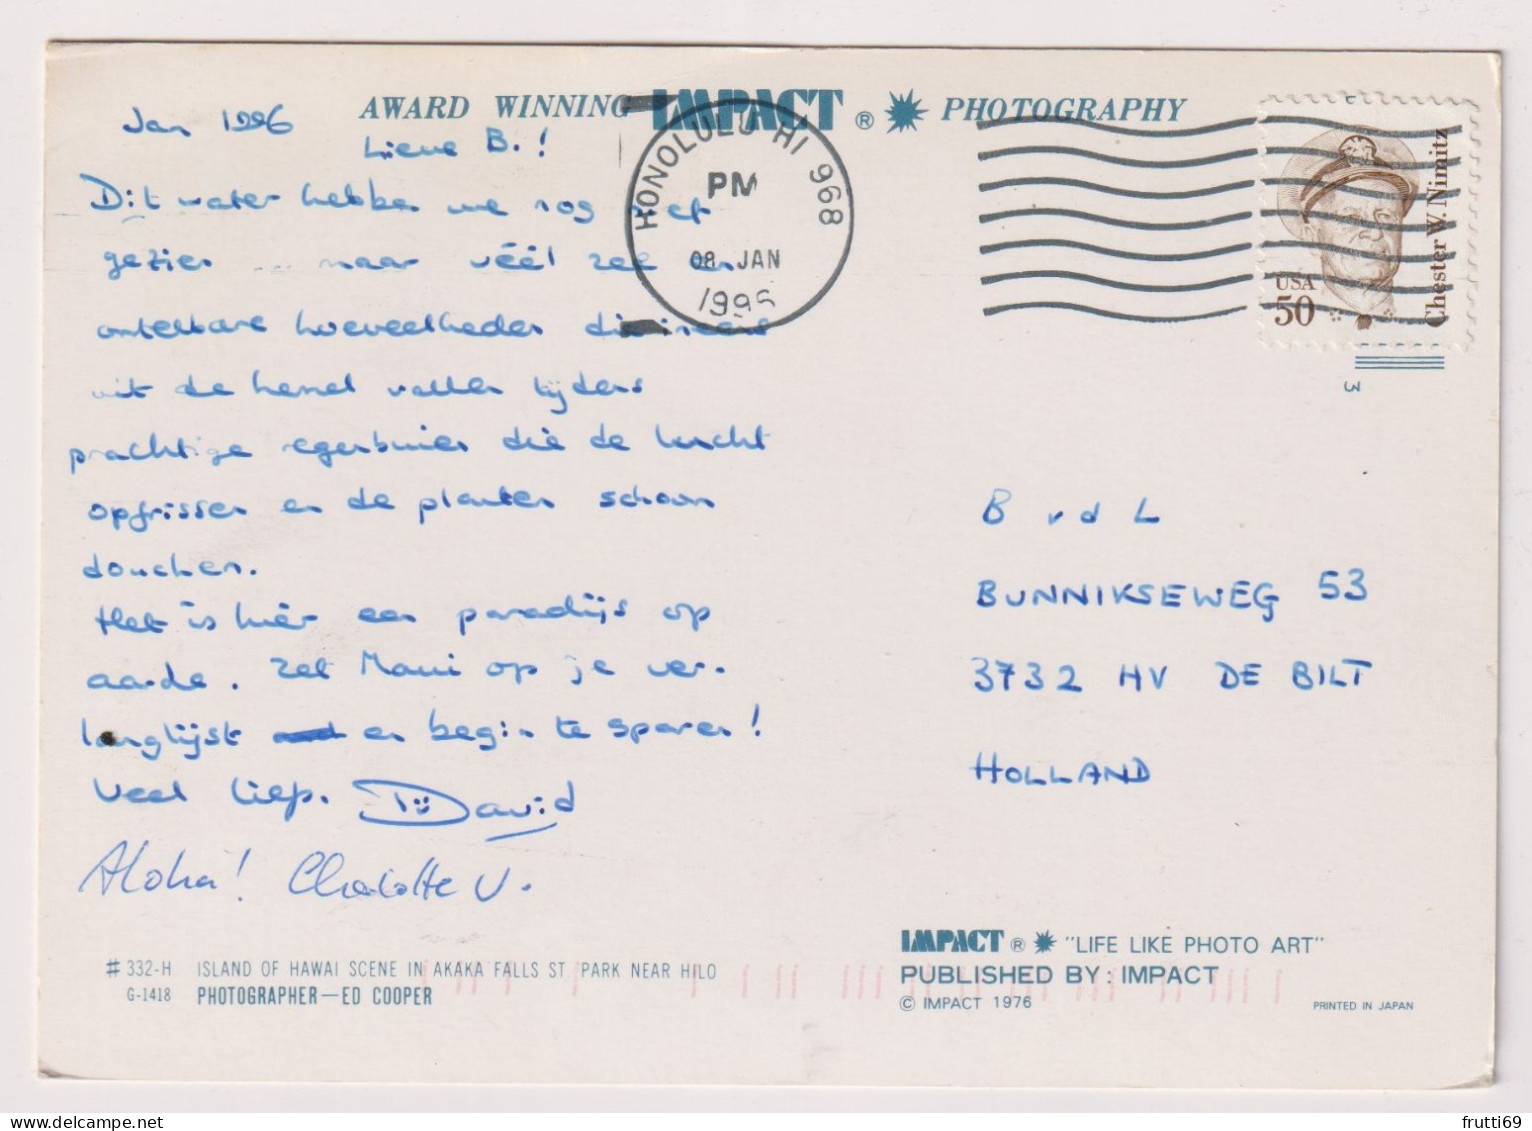 AWARD WINNING IMPACT ® PHOTOGRAPHY
Jan 1996
Lieve B.!
Dit water hebben we nog niet
gezien ... maar véél zee en
ontelbare hoeveelheden die ineens
uit de hemel vallen tijdens
prachtige regenbuien die de lucht
opfrissen en de planten schoon
douchen.
Het is hier een paradijs op
aarde. Zet Maui op je ver-
langlijst en begin te sparen!
Veel liefs. David
Aloha! Charlotte V.
HONOLULU HI 968
PM
08 JAN
1996
USA
50
Chester W. Nimitz
3
B vd L
BUNNIKSEWEG 53
3732 HV DE BILT
HOLLAND
#332-H ISLAND OF HAWAI SCENE IN AKAKA FALLS ST. PARK NEAR HILO
G-1418 PHOTOGRAPHER—ED COOPER
IMPACT ® "LIFE LIKE PHOTO ART"
PUBLISHED BY: IMPACT
© IMPACT 1976
PRINTED IN JAPAN
frutti69